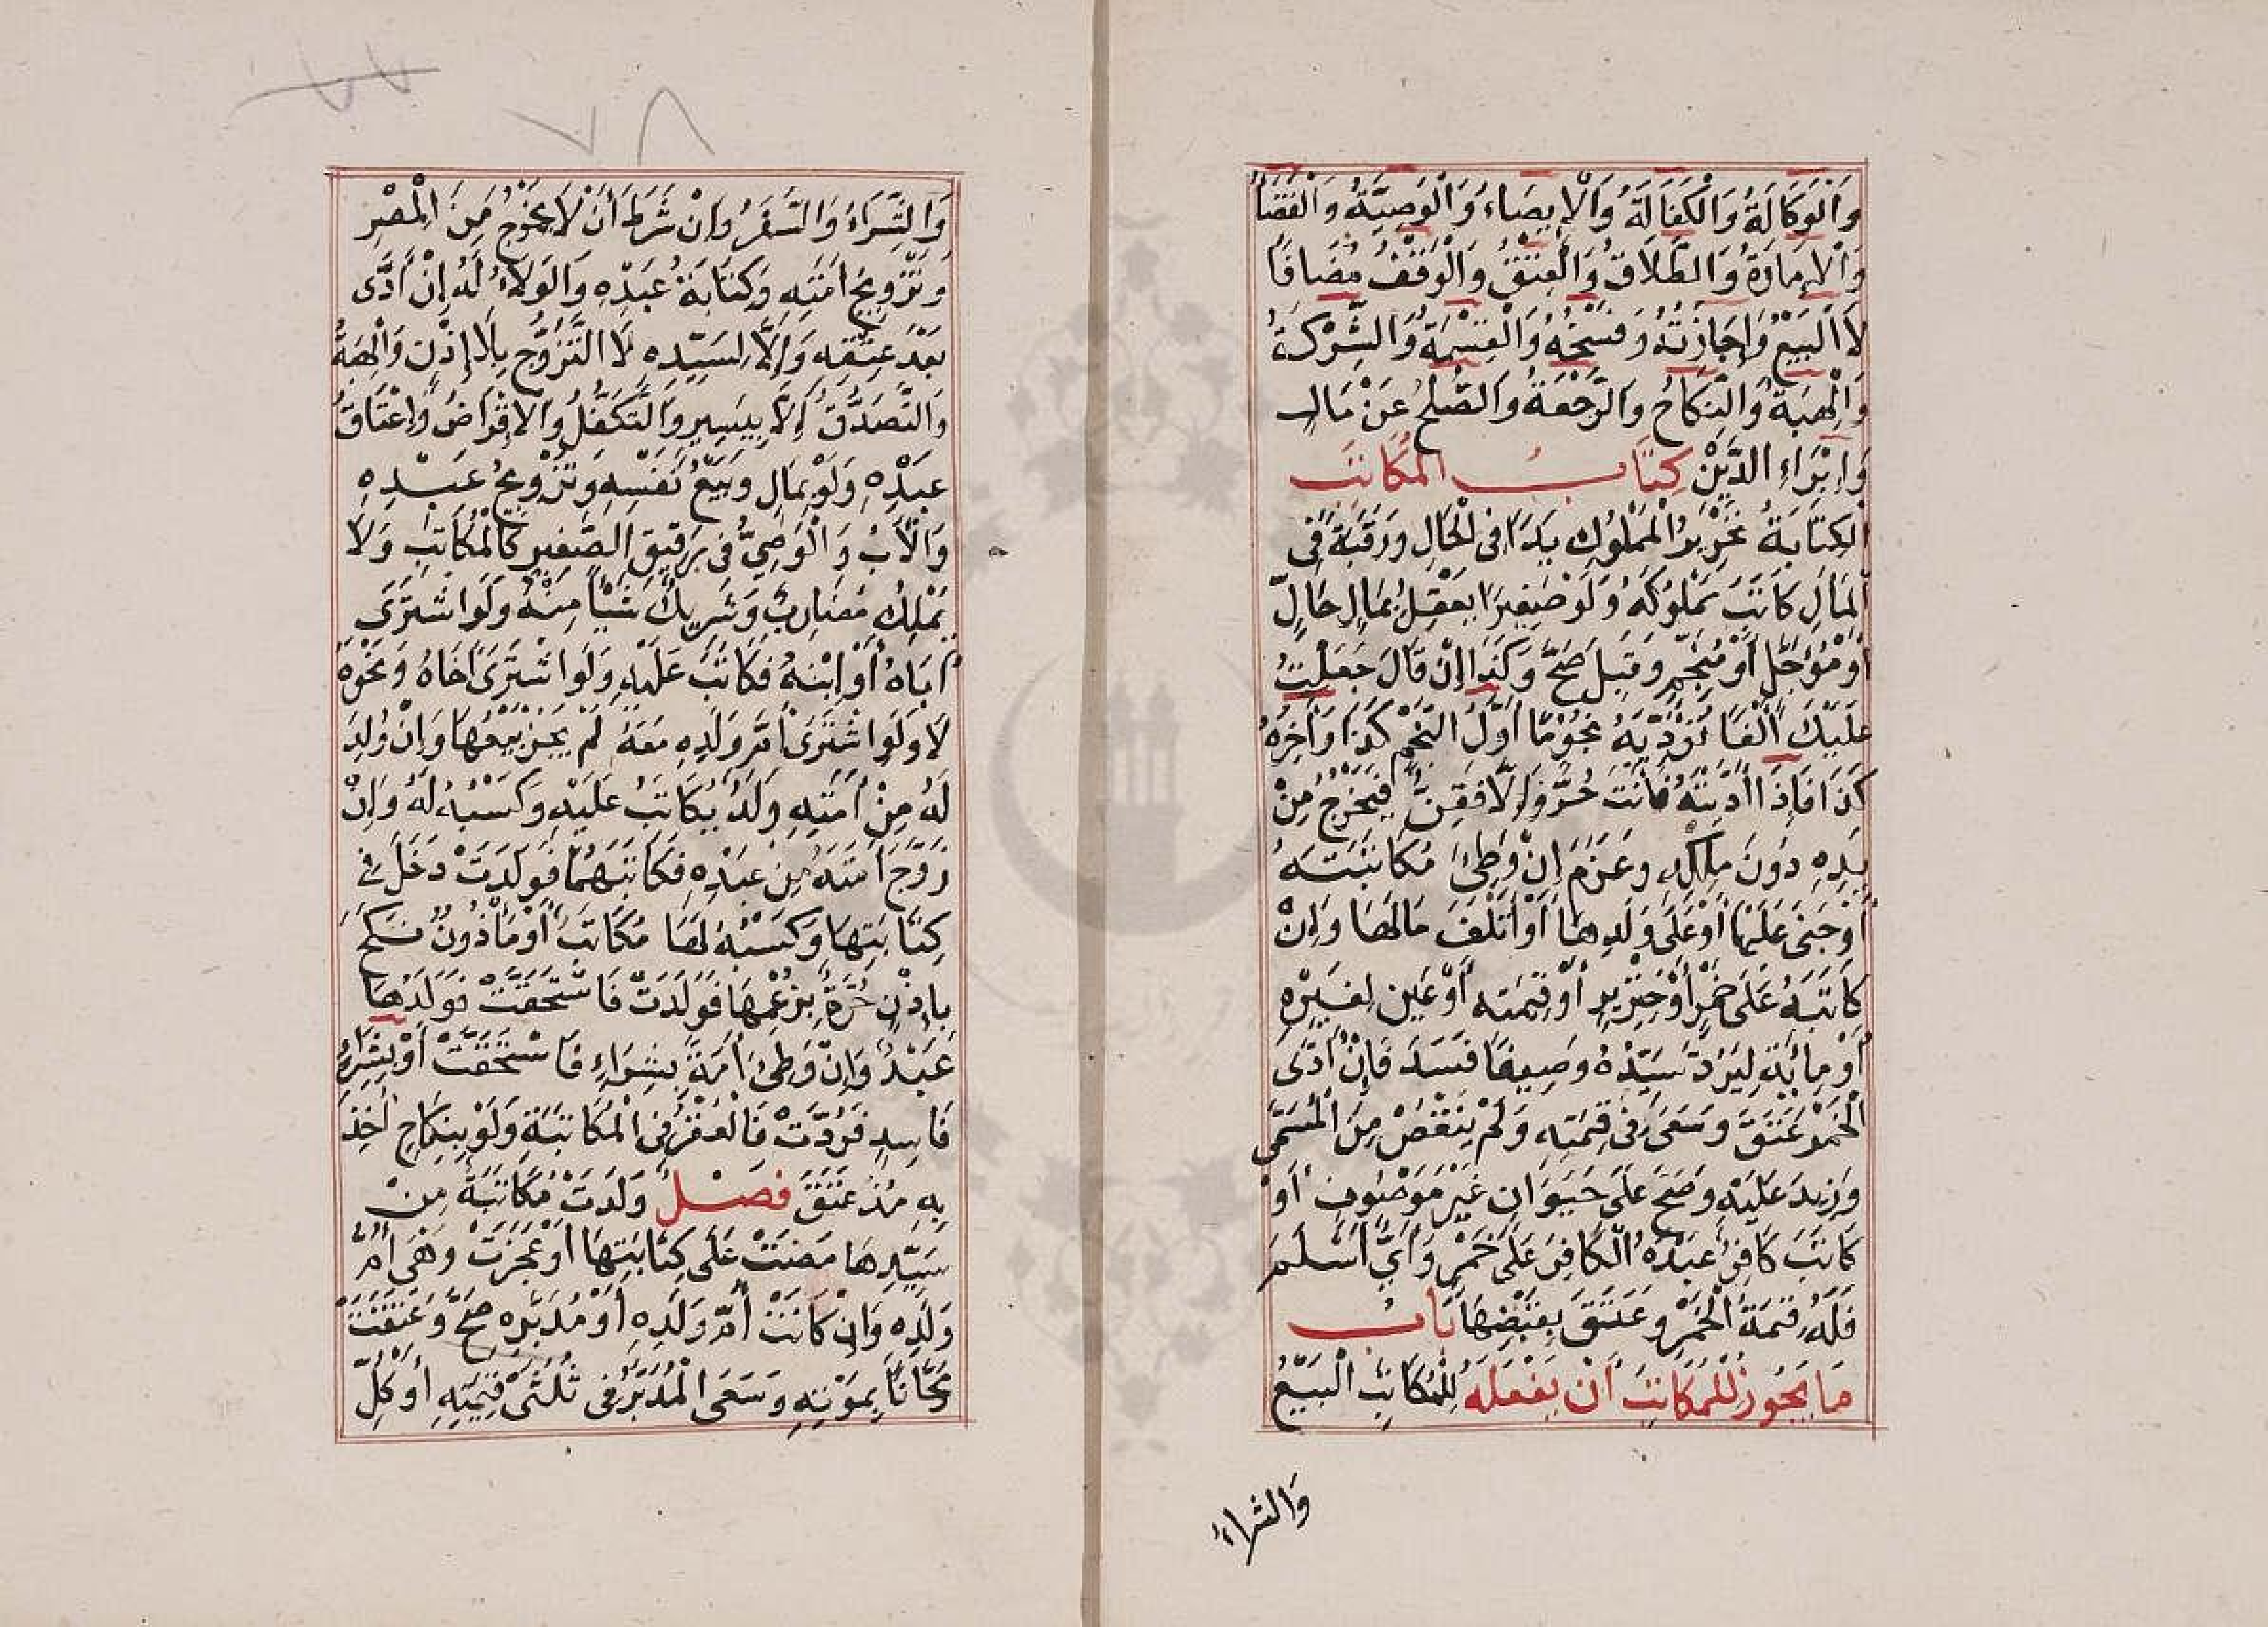 وَالْوَكَالَةُ وَالْكَفَالَةُ وَالْإِيصَاءُ وَالْوَصِيَّةُ وَالْقَضَاءُ
وَالْإِمَارَةُ وَالطَّلَاقُ وَالْعِتْقُ وَالْوَقْفُ مُضَافًا
لَا الْبَيْعُ وَإِجَازَتُهُ وَفَسْخُهُ وَالْقِسْمَةُ وَالشِّرْكَةُ
وَالْهِبَةُ وَالنِّكَاحُ وَالرَّجْعَةُ وَالصُّلْحُ عَنْ مَالٍ
وَإِبْرَاءِ الدَّيْنِ كِتَابُ الْمُكَاتَبِ
الْكِتَابَةُ تَحْرِيرُ الْمَمْلُوكِ يَدًا فِي الْحَالِ وَرَقَبَةً فِي
الْمَالِ كَاتَبَ مَمْلُوكَهُ وَلَوْ صَغِيرًا يَعْقِلُ بِمَالٍ حَالٍّ
أَوْ مُؤَجَّلٍ أَوْ مُنَجَّمٍ وَقَبِلَ صَحَّ وَكَذَا إِنْ قَالَ جَعَلْتُ
عَلَيْكَ أَلْفًا تُؤَدِّيهِ نُجُومًا أَوَّلُ النَّجْمِ كَذَا وَآخِرُهُ
كَذَا فَإِذَا أَدَّيْتَهُ فَأَنْتَ حُرٌّ وَإِلَّا فَقِنٌّ فَيَخْرُجُ مِنْ
يَدِهِ دُونَ مِلْكِهِ وَغَرِمَ إِنْ وَطِئَ مُكَاتَبَتَهُ
أَوْ جَنَى عَلَيْهَا أَوْ عَلَى وَلَدِهَا أَوْ أَتْلَفَ مَالَهَا وَإِنْ
كَاتَبَهُ عَلَى خَمْرٍ أَوْ خِنْزِيرٍ أَوْ قِيمَتِهِ أَوْ عَيْنٍ لِغَيْرِهِ
أَوْ مِائَةٍ لِيَرُدَّ سَيِّدُهُ وَصِيفًا فَسَدَ فَإِنْ أَدَّى
الْخَمْرَ عَتَقَ وَسَعَى فِي قِيمَتِهِ وَلَمْ يَنْقُصْ مِنَ الْمُسَمَّى
وَزِيدَ عَلَيْهِ وَصَحَّ عَلَى حَيَوَانٍ غَيْرِ مَوْصُوفٍ أَوْ
كَاتَبَ كَافِرٌ عَبْدَهُ الْكَافِرَ عَلَى خَمْرٍ وَأَيٌّ أَسْلَمَ
فَلَهُ قِيمَةُ الْخَمْرِ وَعَتَقَ بِقَبْضِهَا بَابُ
مَا يَجُوزُ لِلْمُكَاتَبِ أَنْ يَفْعَلَهُ لِلْمُكَاتَبِ الْبَيْعُ
وَالشراءُ
٧٨
وَالشِّرَاءُ وَالسَّفَرُ وَإِنْ شَرَطَ أَنْ لَا يَخْرُجَ مِنَ الْمِصْرِ
وَتَزْوِيجُ أَمَتِهِ وَكِتَابَةُ عَبْدِهِ وَالْوَلَاءُ لَهُ إِنْ أَدَّى
بَعْدَ عِتْقِهِ وَإِلَّا لِسَيِّدِهِ لَا التَّزَوُّجُ بِلَا إِذْنٍ وَالْهِبَةُ
وَالتَّصَدُّقُ إِلَّا بِيَسِيرٍ وَالتَّكَفُّلُ وَالْإِقْرَاضُ وَإِعْتَاقُ
عَبْدِهِ وَلَوْ بِمَالٍ وَبَيْعُ نَفْسِهِ وَتَزْوِيجُ عَبْدِهِ
وَالْأَبُ وَالْوَصِيُّ فِي رَقِيقِ الصَّغِيرِ كَالْمُكَاتَبِ وَلَا
يَمْلِكُ مُضَارِبٌ وَشَرِيكٌ شَيْئًا مِنْهُ وَلَوِ اشْتَرَى
أَبَاهُ أَوِ ابْنَهُ فَكَاتَبَ عَلَيْهِ وَلَوِ اشْتَرَى أَخَاهُ وَنَحْوَهُ
لَا وَلَوِ اشْتَرَى أُمَّ وَلَدِهِ مَعَهُ لَمْ يَجُزْ بَيْعُهَا وَإِنْ وُلِدَ
لَهُ مِنْ أَمَتِهِ وَلَدٌ يُكَاتَبُ عَلَيْهِ وَكَسْبُهُ لَهُ وَإِنْ
زَوَّجَ أَمَتَهُ مِنْ عَبْدِهِ فَكَاتَبَهُمَا فَوَلَدَتْ دَخَلَ فِي
كِتَابَتِهَا وَكَسْبُهُ لَهَا مُكَاتَبٌ أَوْ مَأْذُونٌ نَكَحَ
بِإِذْنٍ حُرَّةً بِزَعْمِهَا فَوَلَدَتْ فَاسْتُحِقَّتْ فَوَلَدُهَا
عَبْدٌ وَإِنْ وَطِئَ أَمَةً بِشِرَاءٍ فَاسْتُحِقَّتْ أَوْ بِشِرَاءٍ
فَاسِدٍ فَرُدَّتْ فَالْعُقْرُ فِي الْمُكَاتَبَةِ وَلَوْ بِنِكَاحٍ أُخِذَ
بِهِ مُذْ عَتَقَ فَصْلٌ وَلَدَتْ مُكَاتَبَةٌ مِنْ
سَيِّدِهَا مَضَتْ عَلَى كِتَابَتِهَا أَوْ عَجَزَتْ وَهِيَ أُمُّ
وَلَدِهِ وَإِنْ كَاتَبَ أُمَّ وَلَدِهِ أَوْ مُدَبَّرَهُ صَحَّ وَعَتَقَتْ
مَجَّانًا بِمَوْتِهِ وَسَعَى الْمُدَبَّرُ فِي ثُلُثَيْ قِيمَتِهِ أَوْ كُلِّ